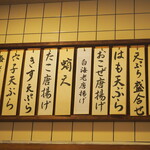 天ぷら盛合せ
はも天ぷら
おこぜ唐揚げ
白海老唐揚げ
蛸天
たこ唐揚げ
きす天ぷら
穴子天ぷら